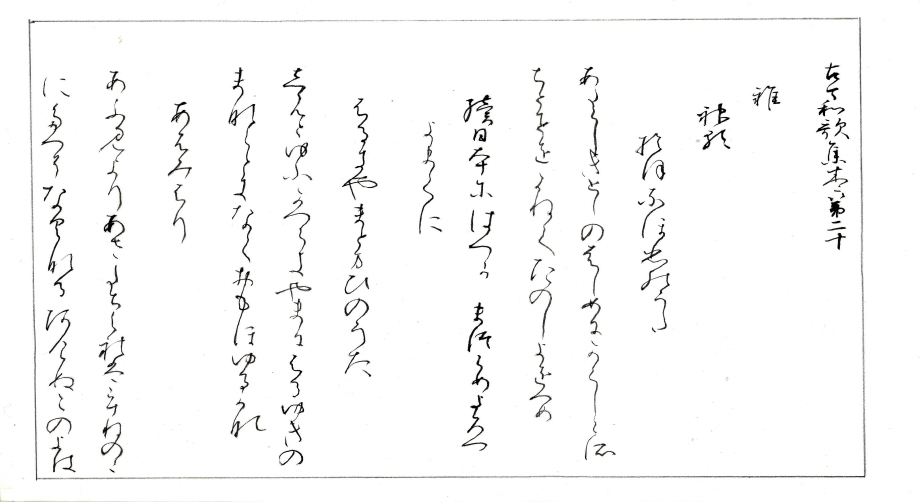 古今和歌集巻第二十
雑
おほなほひのうた
あたらしきとしのはしめにかくしこそ
ちとせをかねてたのしきをつめ
続日本には つかへまつらめよろつ
よまてに
ふるきやまとまひのうた
しもとゆふかつらきやまにふるゆきの
まなくときなくおもほゆるかな
あふみふり
あふみよりあさたちくれはうねのの
にたつそなくなるあけぬこのよは